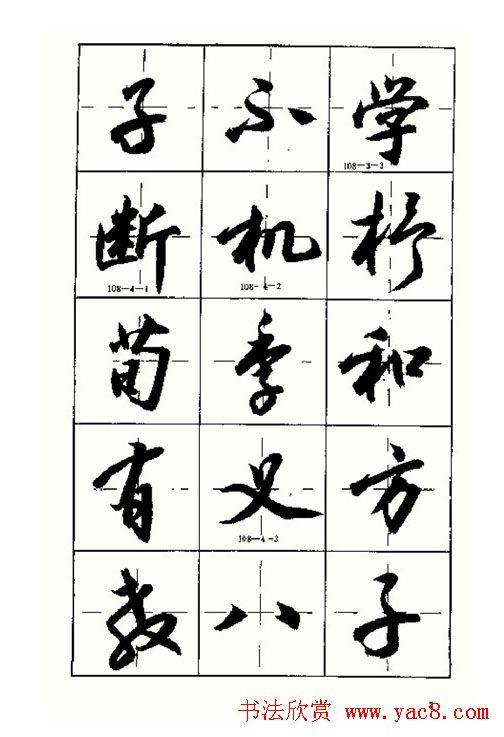 子不学
108-3-3
断机杼
108-4-1
108-4-2
荀季和
有义方
108-4-3
教八子
书法欣赏 www.yac8.com